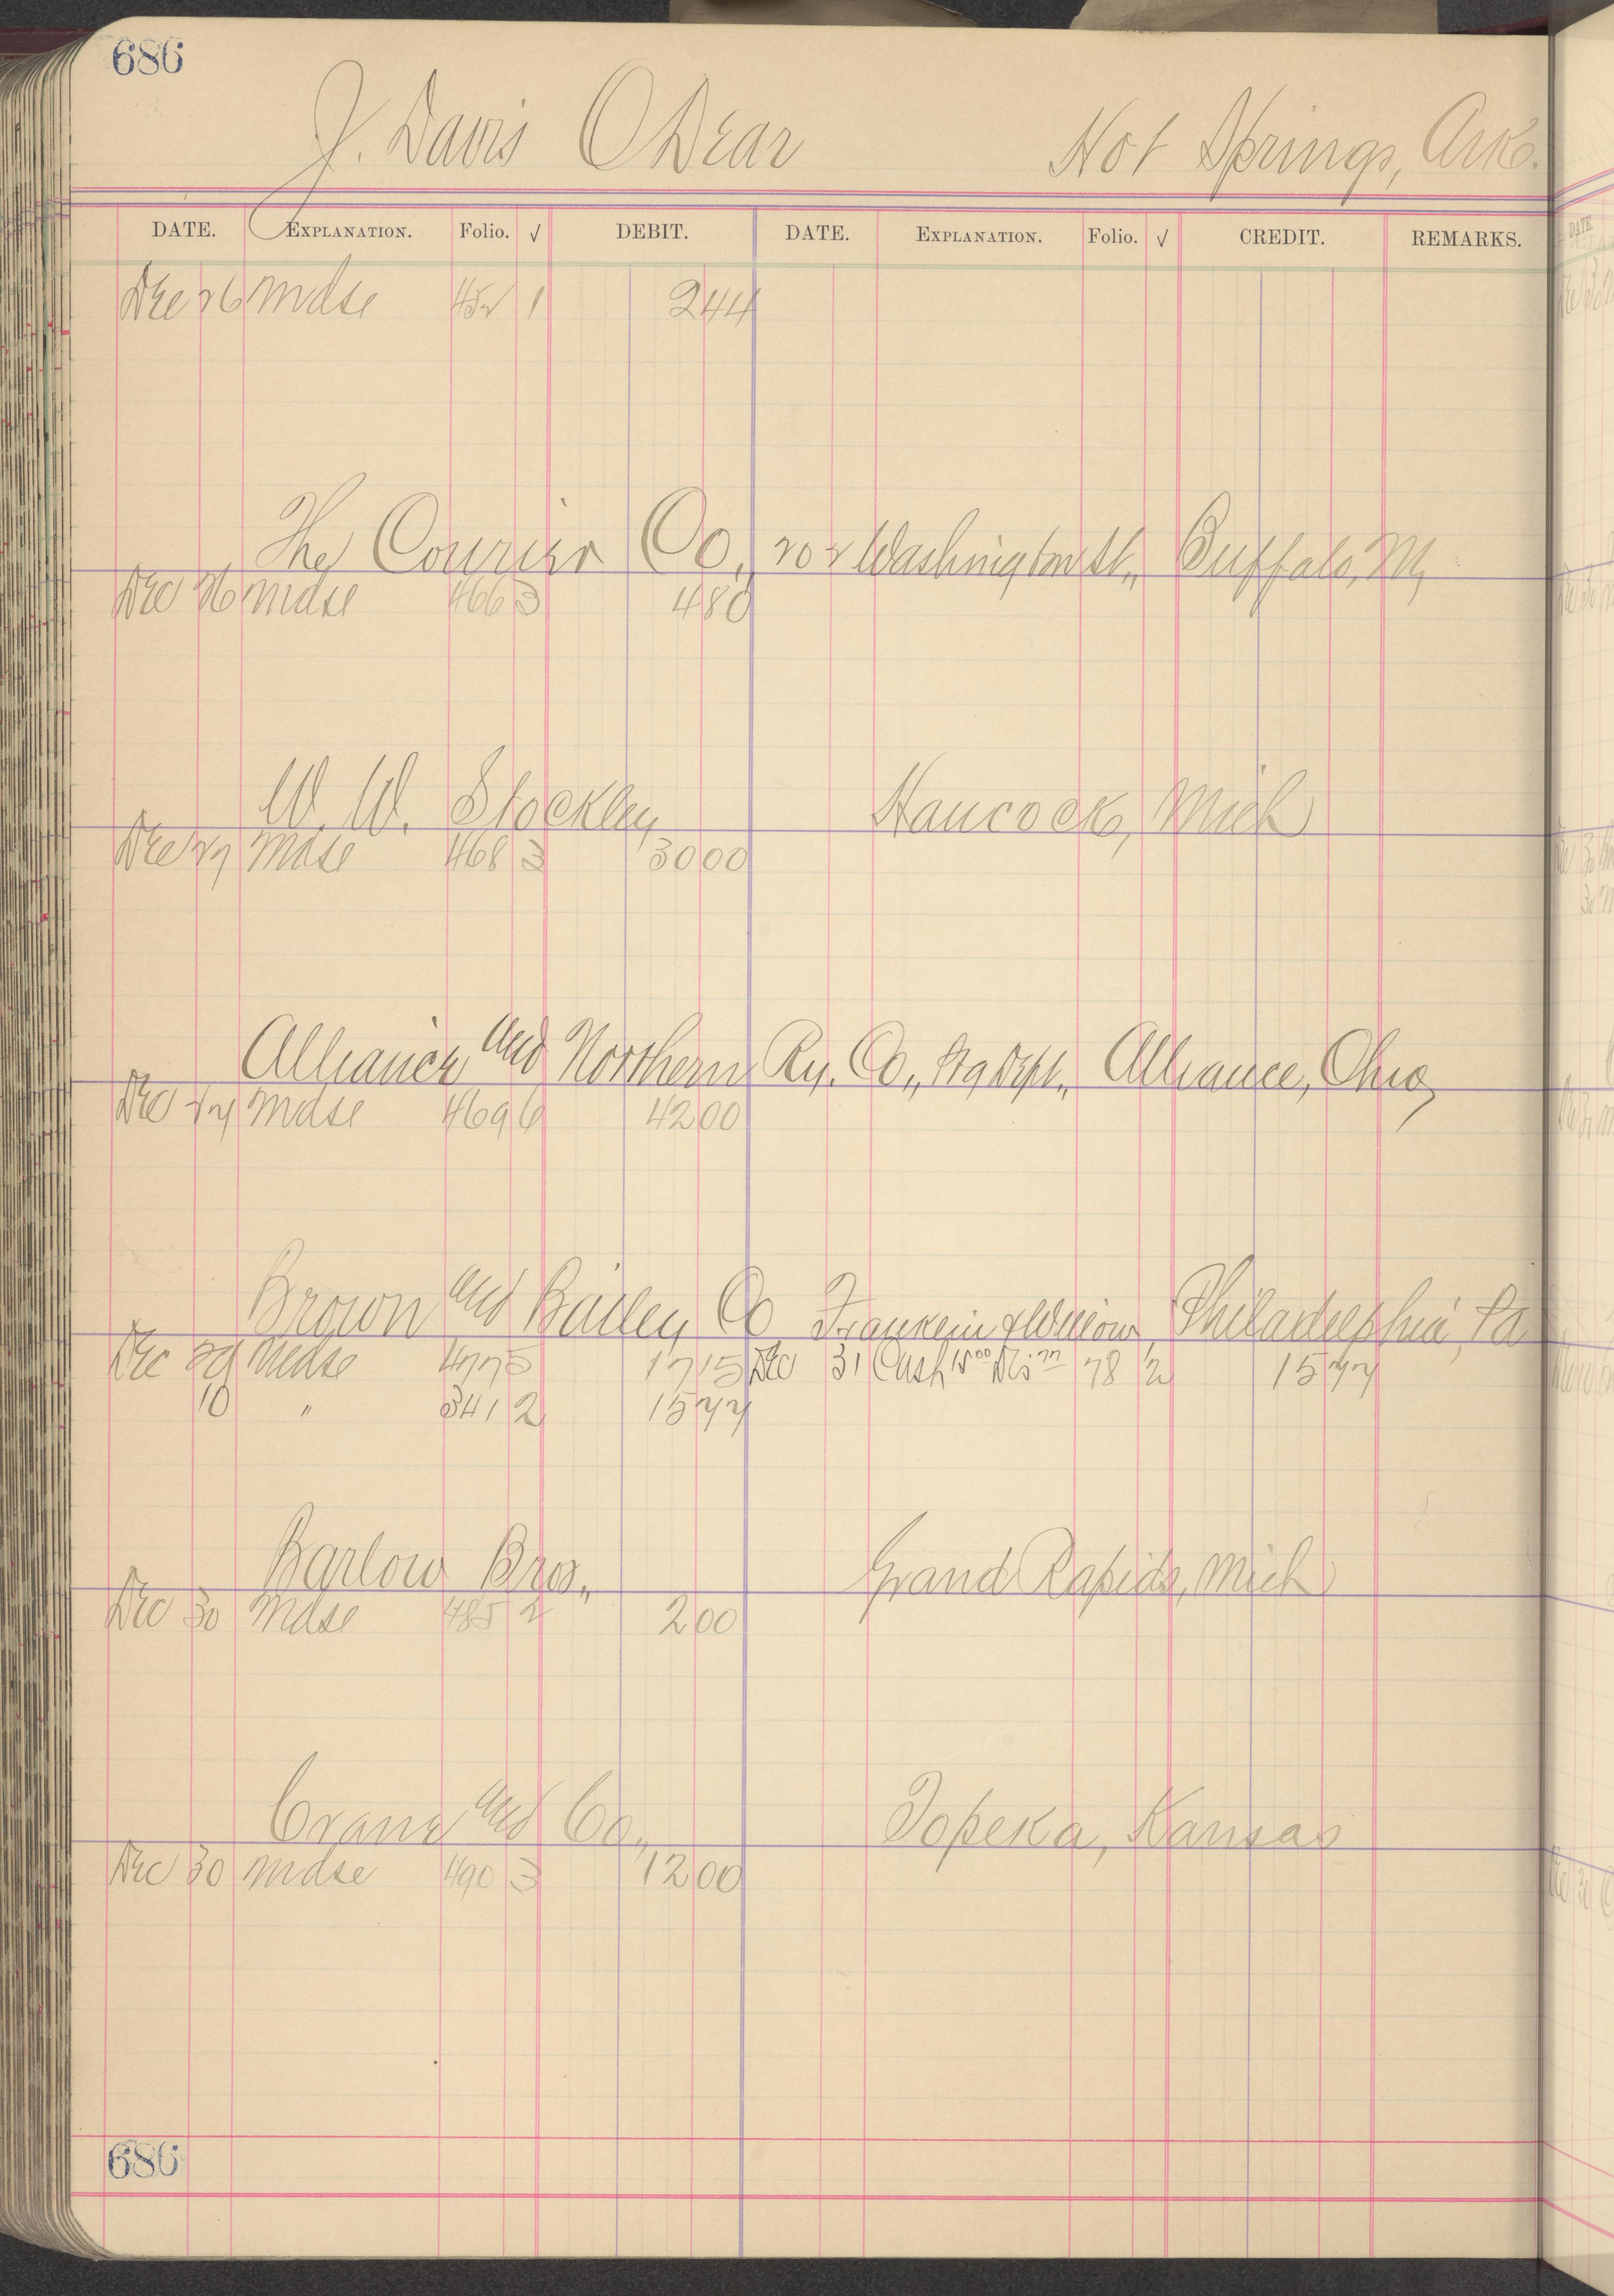 686
J. Davis O'Dear Hot Springs, Ark.
DATE. EXPLANATION. Folio. √ DEBIT. DATE. EXPLANATION. Folio. √ CREDIT. REMARKS.
Dec 26 Mdse 452 1 244
The Courier Co., 202 Washington St., Buffalo, N.Y.
Dec 26 Mdse 466 3 480
W. W. Stockley Hancock, Mich
Dec 27 Mdse 468 3 3000
Alliance and Northern Ry. Co., Dept., Alliance, Ohio,
Dec 27 Mdse 469 6 4200
Brown and Bailey Co Franklin & Willow Philadelphia, Pa
Dec 29 Mdse 477 5 1715 Dec 31 Cash 15⁰⁰ Dis ⁷⁷ 78 2 1577
10 " 341 2 1577
Barlow Bros., Grand Rapids, Mich
Dec 30 Mdse 485 2 200
Crane and Co., Topeka, Kansas
Dec 30 Mdse 490 3 1200
686